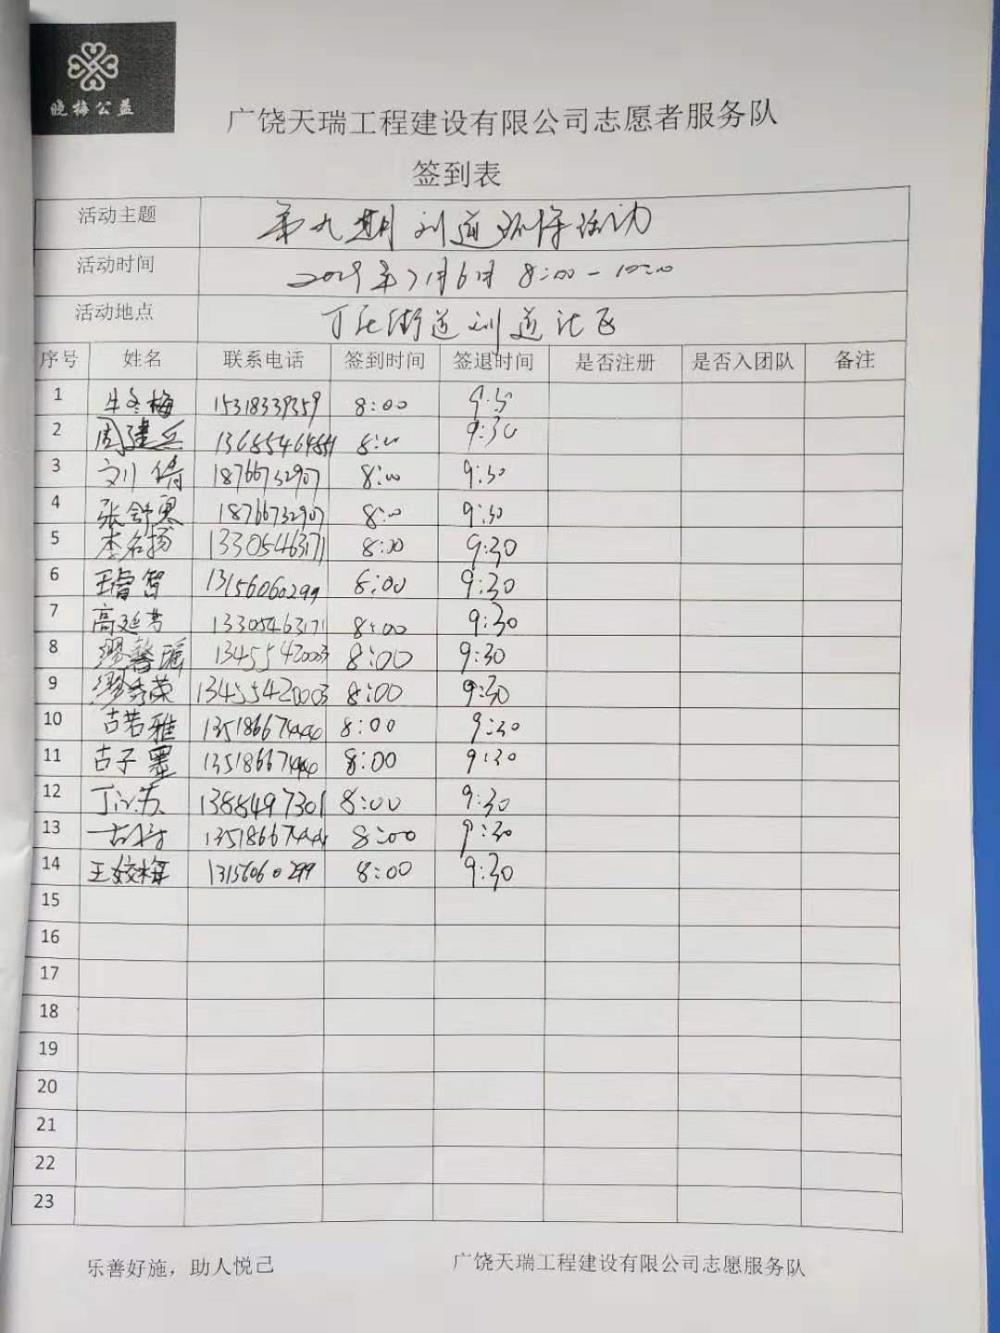 晓梅公益
广饶天瑞工程建设有限公司志愿者服务队
签到表
活动主题 第九期刘道环保活动
活动时间 2019年7月6日 8:00-10:00
活动地点 丁庄街道刘道社区
序号 姓名 联系电话 签到时间 签退时间 是否注册 是否入团队 备注
1 牛冬梅 15318339359 8:00 9:30
2 周建兵 8:00 9:30
3 刘倩 18766732907 8:00 9:30
4 张舒恩 18766732907 8:00 9:30
5 李名扬 13305463171 8:00 9:30
6 王睿智 13156060299 8:00 9:30
7 高延芳 13305463171 8:00 9:30
8 缪馨瑶 13455420003 8:00 9:30
9 缪秀荣 13455420003 8:00 9:30
10 古若雅 13518667444 8:00 9:30
11 古子墨 13518667444 8:00 9:30
12 8:00 9:30
13 13518667444 8:00 9:30
14 王姣梅 13156060299 8:00 9:30
15
16
17
18
19
20
21
22
23
乐善好施，助人悦己 广饶天瑞工程建设有限公司志愿服务队